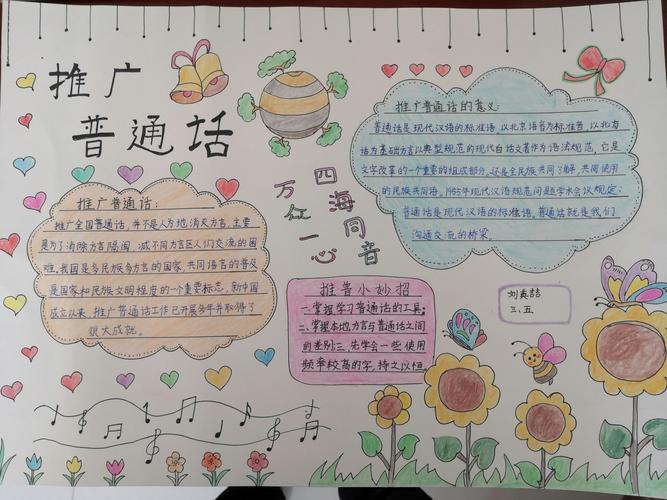 推广
普通话
推广普通话:
推广全国普通话,并不是人为地消灭方言,主要
是为了消除方言隔阂,减不同方言区人们交流的困
难,我国是多民族多方言的国家,共同语言的普及
是国家和民族文明程度的一个重要标志。新中国
成立以来,推广普通话工作已开展多年并取得了
很大成就。
四海同音
万众一心
推广普通话的意义
普通话是现代汉语的标准语,以北京语音为标准音,以北方
话为基础方言以典型规范的现代白话文著作为语法规范,它是
文字改革的一个重要的组成部分,还是全民族共同了解,共同使用
的民族共同语。1955年现代汉语规范问题学术会议规定:
普通话是现代汉语的标准语。普通话就是我们
沟通交流的桥梁。
推普小妙招
一.掌握学习普通话的工具;
二.掌握本地方言与普通话之间
的差别三.先学会一些使用
频率较高的字,持之以恒
三、五